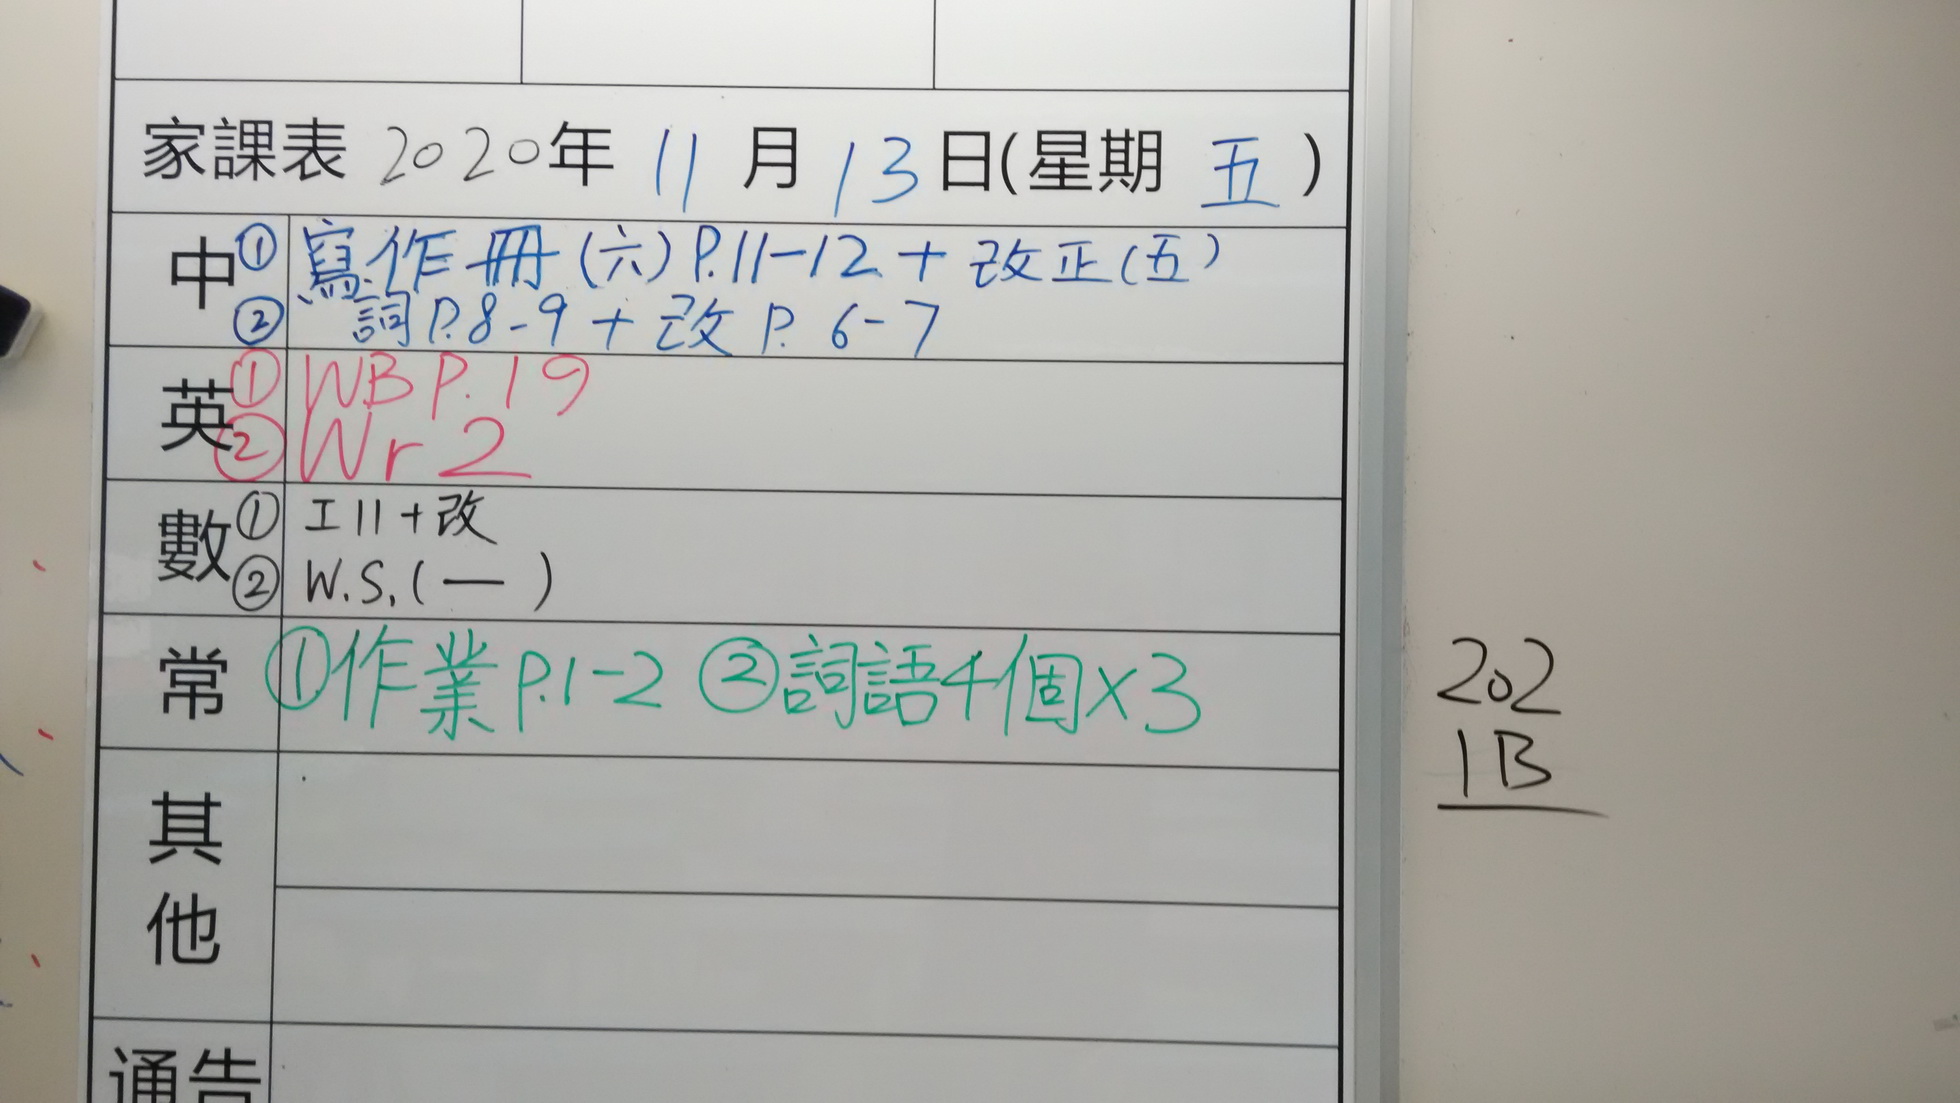 家課表 2020年 11月13日(星期五)
中① 寫作冊(六)P.11-12+改正(五)
② 詞P.8-9+改P.6-7
英① WB P.19
② Wr 2
數① 工11+改
② W.S.(一)
常 ①作業P.1-2 ②詞語4個×3
其他
通告
202
1B